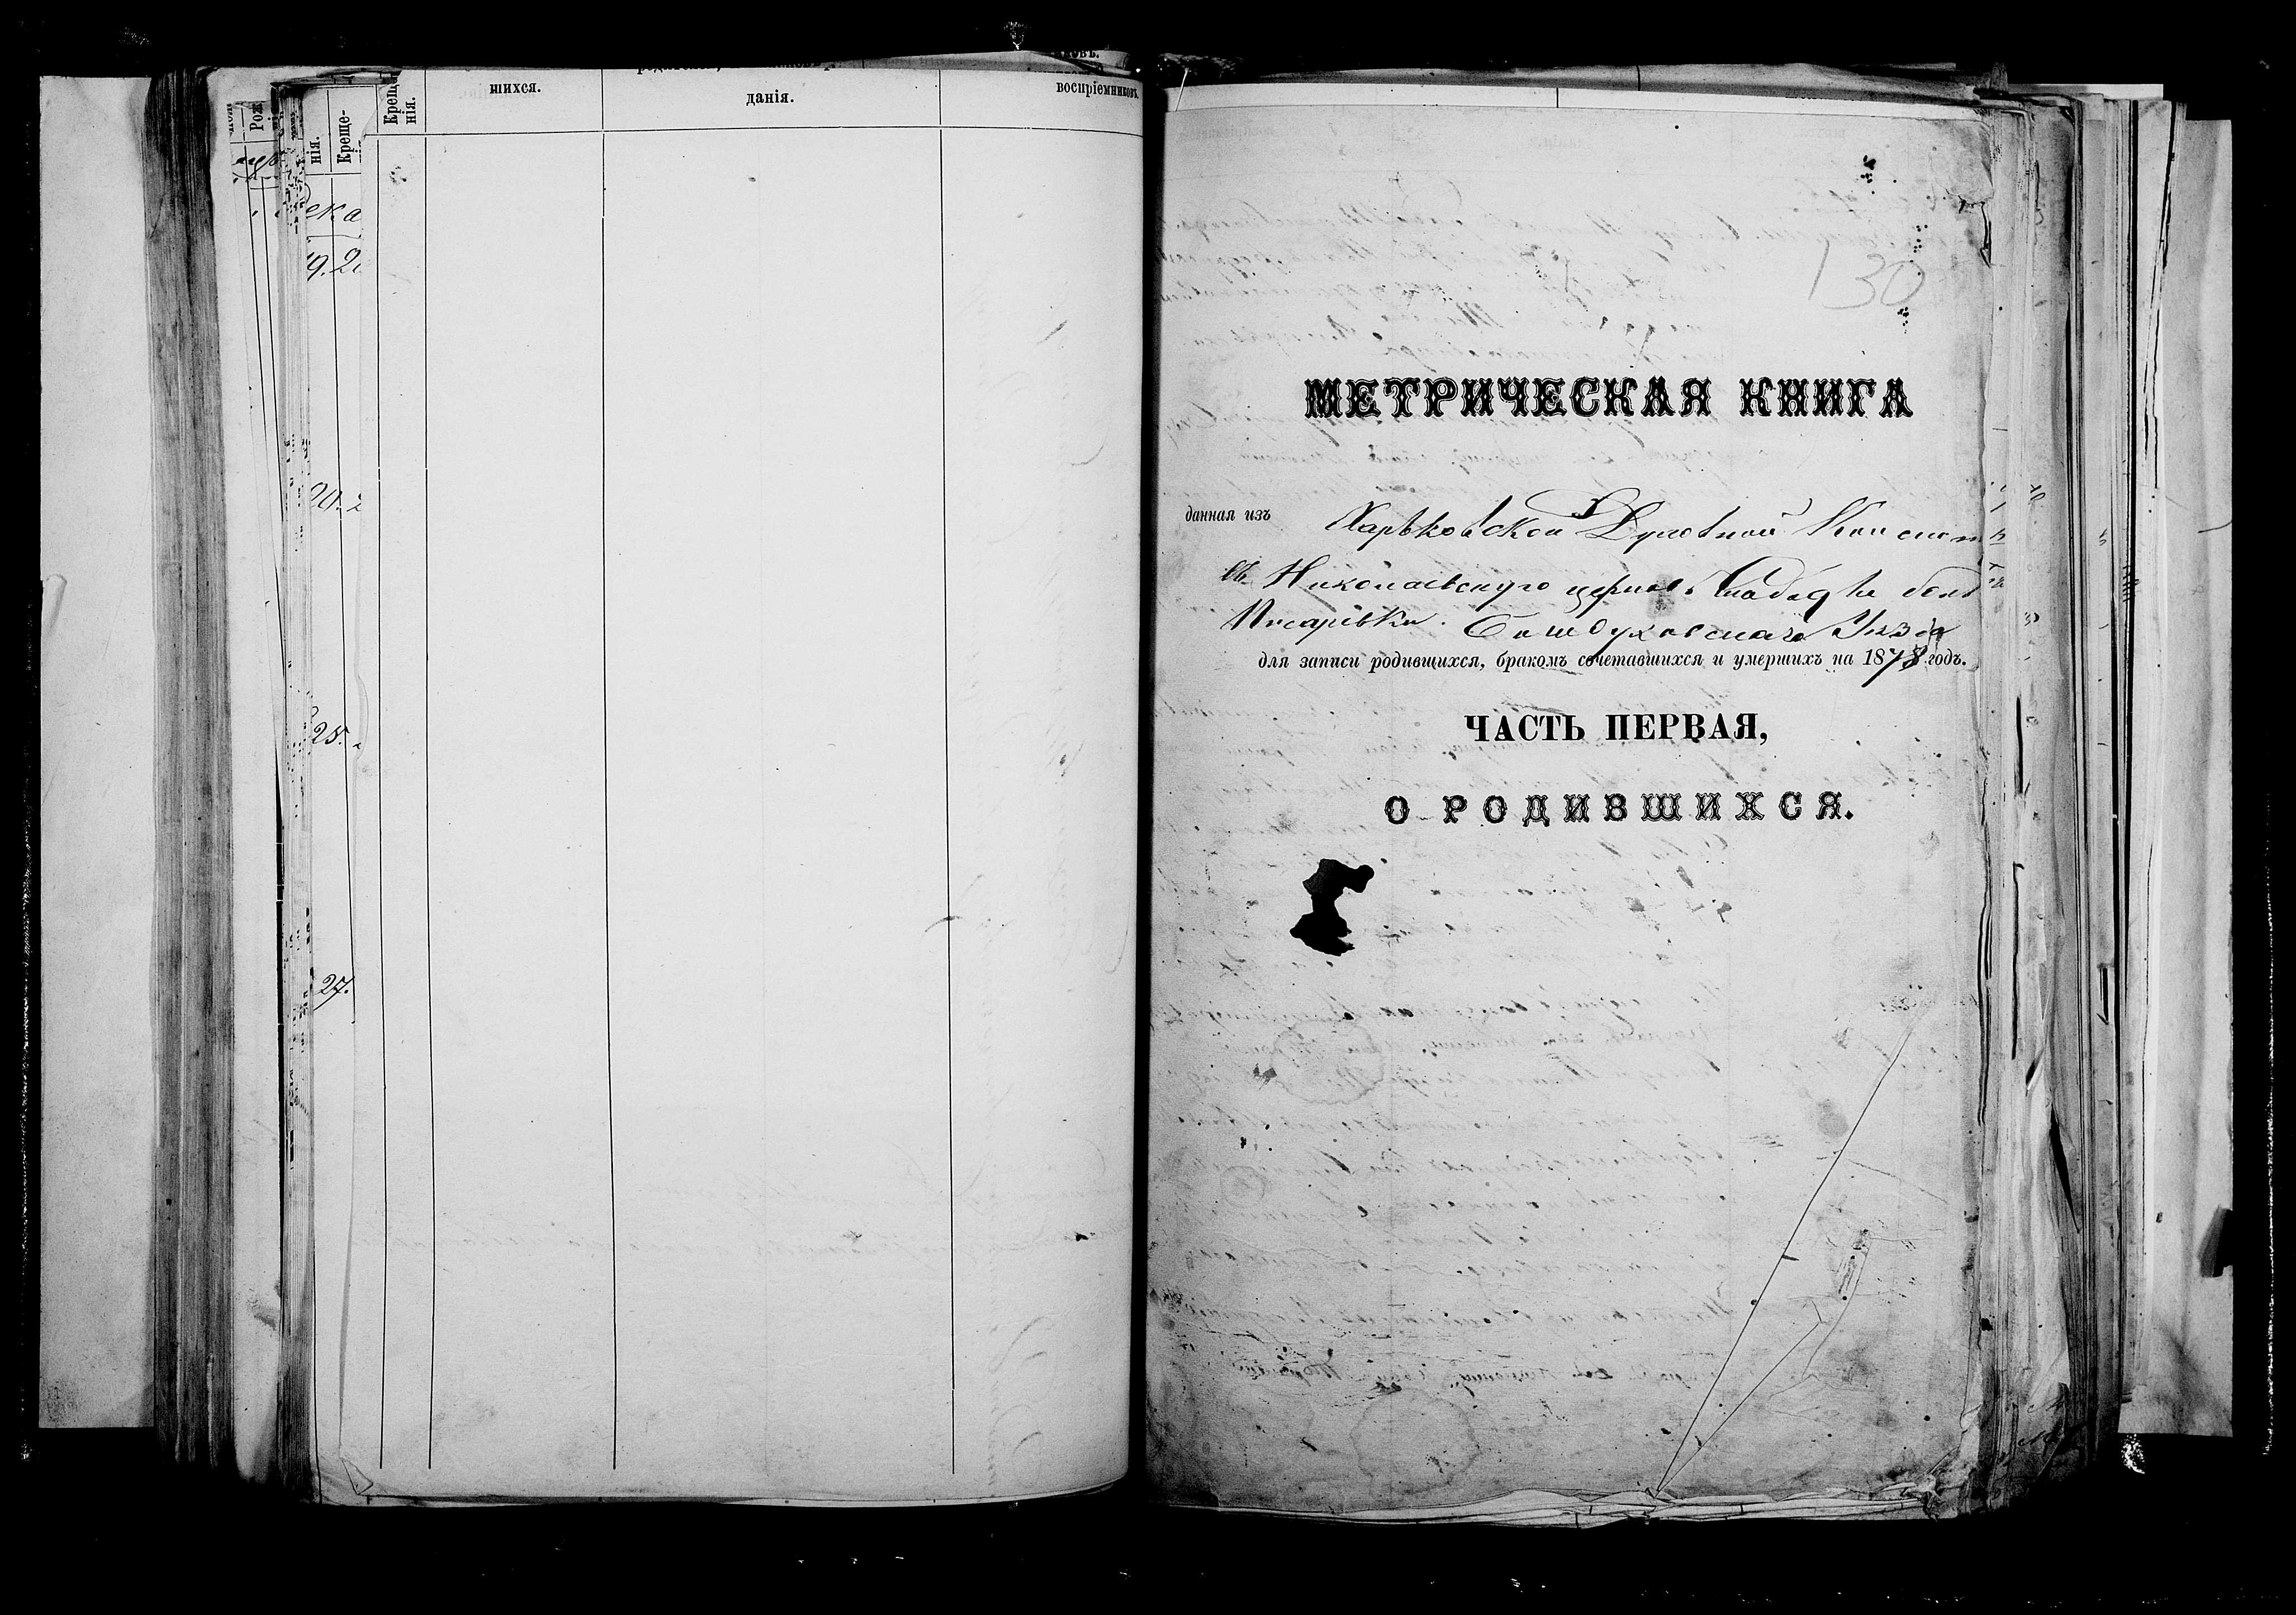 Рож
нія.
Креще-
Креще
нія.
шихся.
данія.
воспріемниковъ.
ека
19. 2
20. 2
25.
27.
130
МЕТРИЧЕСКАЯ КНИГА
данная изъ Харьковской Духовной Консист
въ Николаевскую церковь Слободы
Писаревки Богодуховскаго Уѣзда
для записи родившихся, бракомъ сочетавшихся и умершихъ на 1878 годъ.
ЧАСТЬ ПЕРВАЯ,
О РОДИВШИХСЯ.